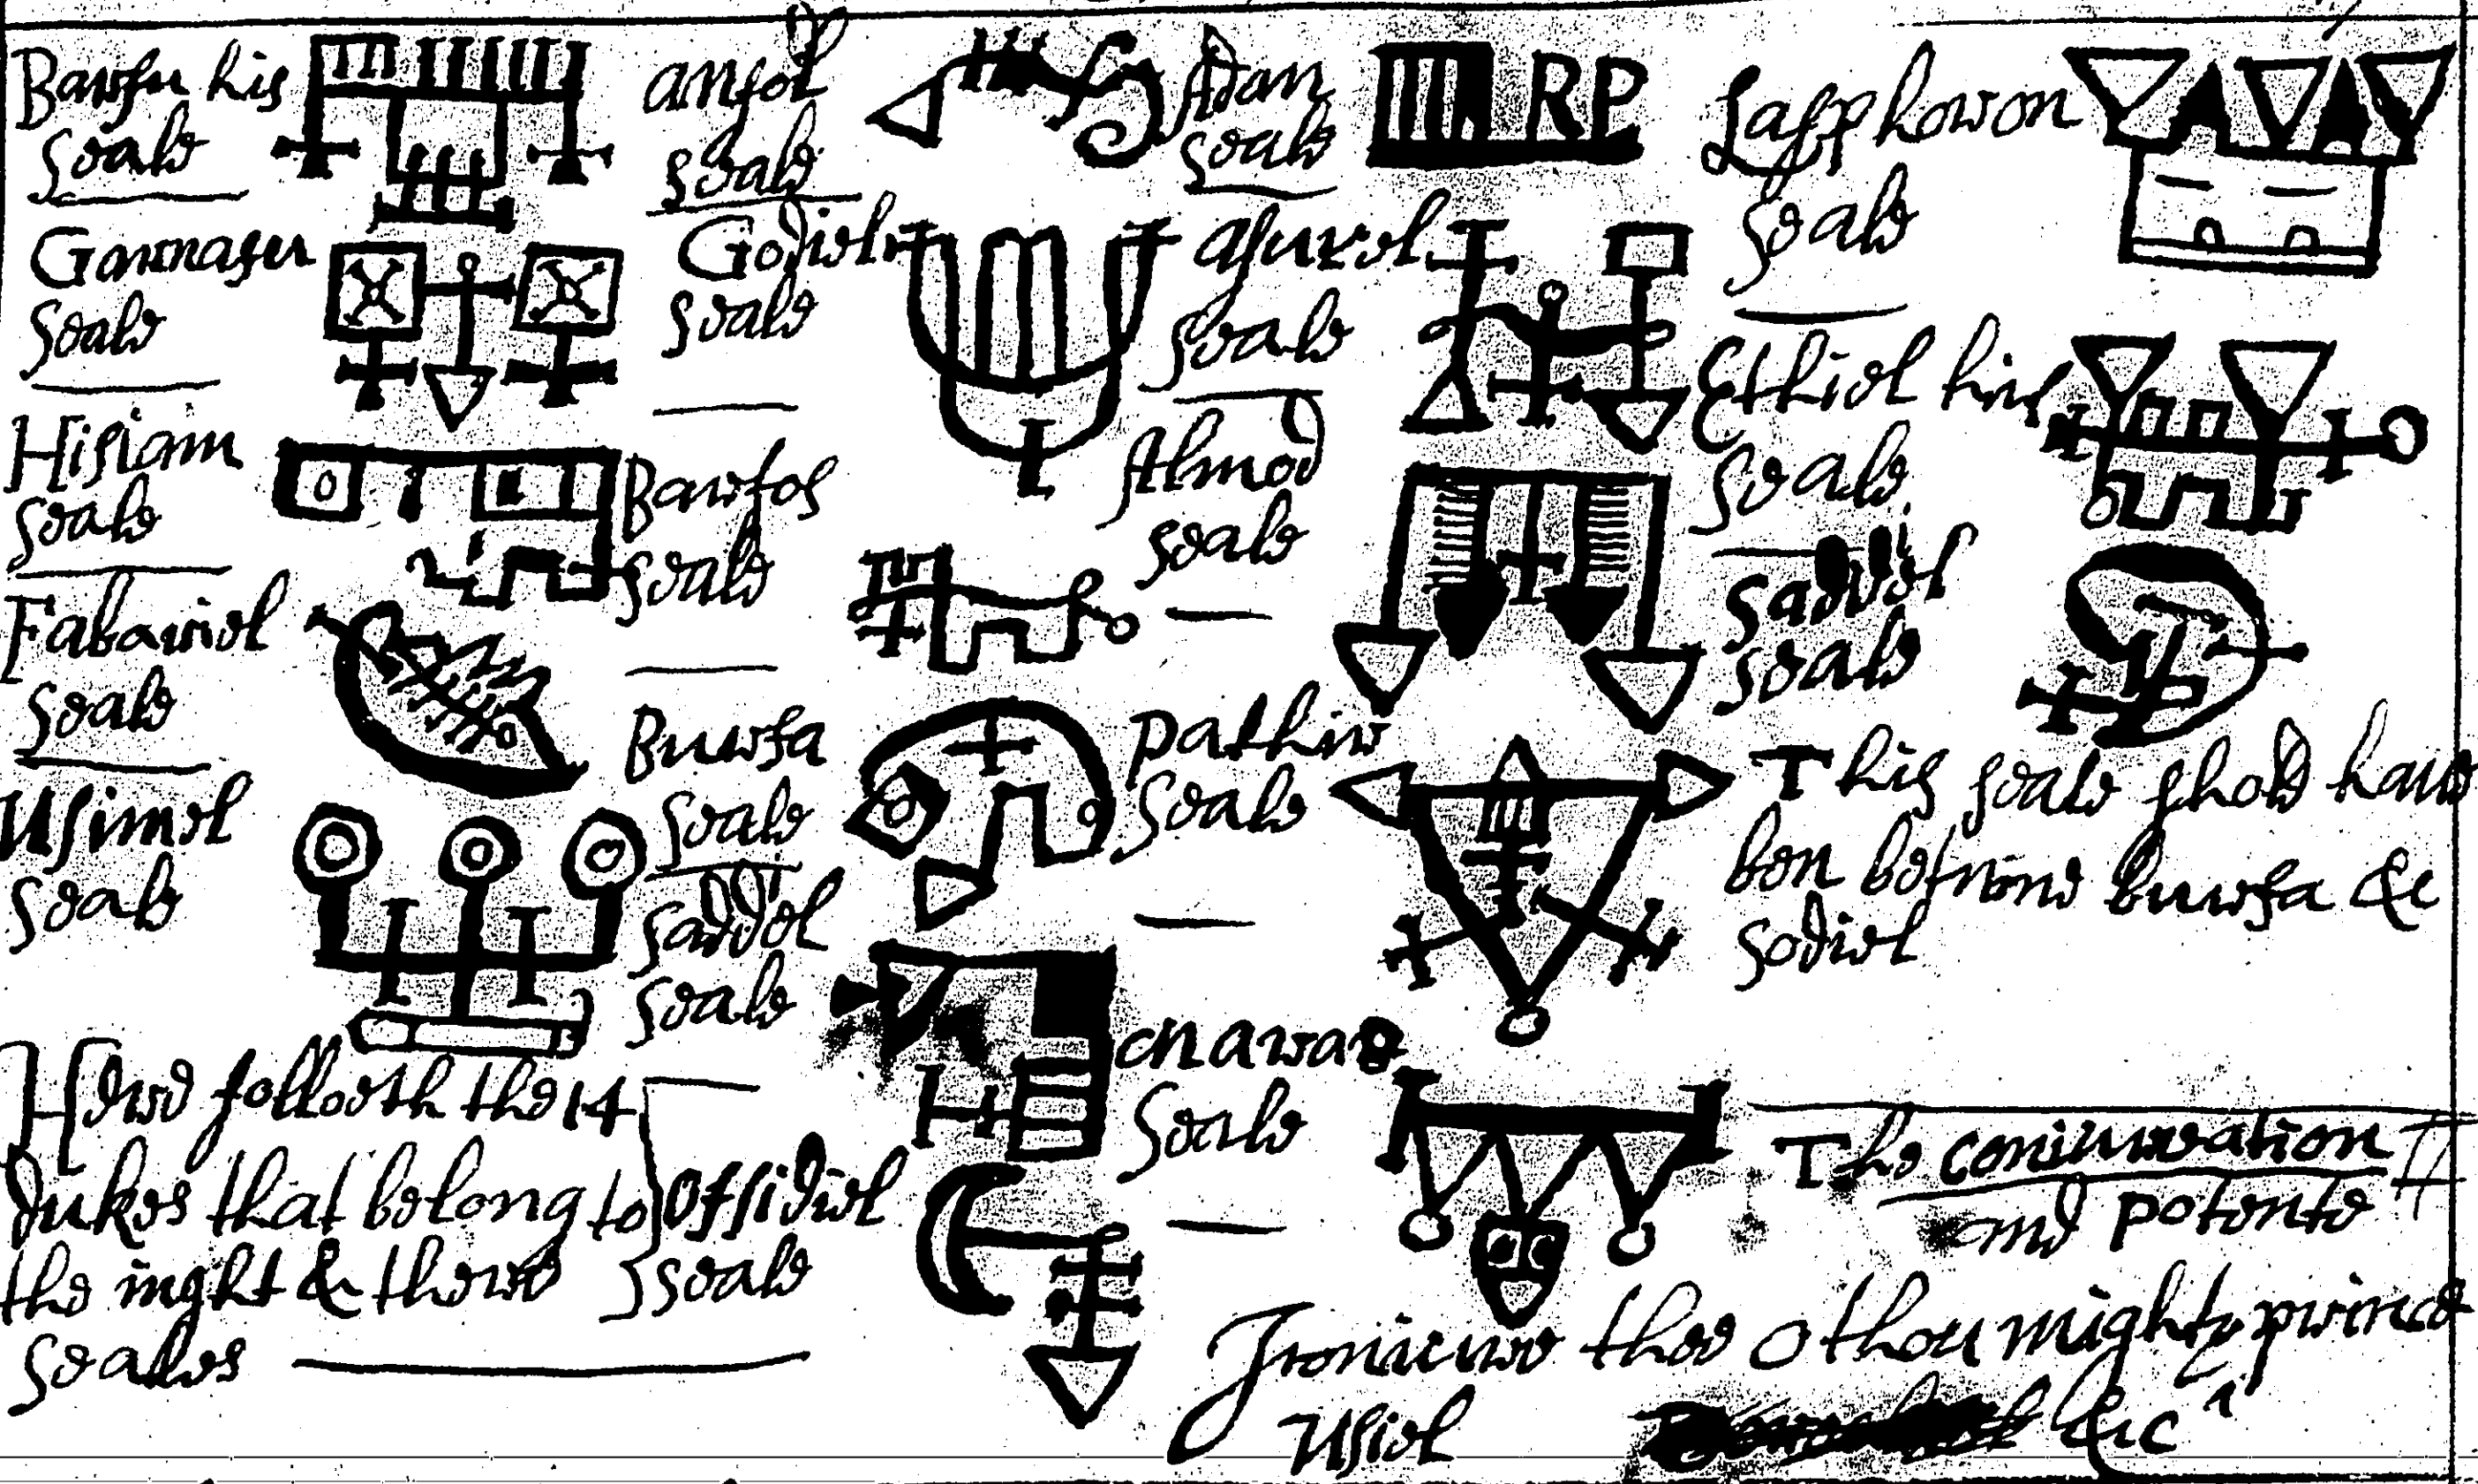 Barsu his
Seale
Garnasu
Seale
Hisiam
Seale
Fabariel
Seale
Usiniel
Seale
Here followeth the 14
dukes that belong to
the night & there
Seales
Ansoel
Seale
Godiel
Seale
Barfos
Seale
Burfa
Seale
Saddiel
Seale
Ossidiel
Seale
Adan
Seale
Asurel
Seale
Almod
Seale
Pathir
Seale
Marae
Seale
Lasphoron
Seale
Ethiel his
Seale
Seale
This seale shold have
ben betwene burfa &
Sodiel
The coniuration
and potente
I coniure thee O thou mighty prince
Usiel &c